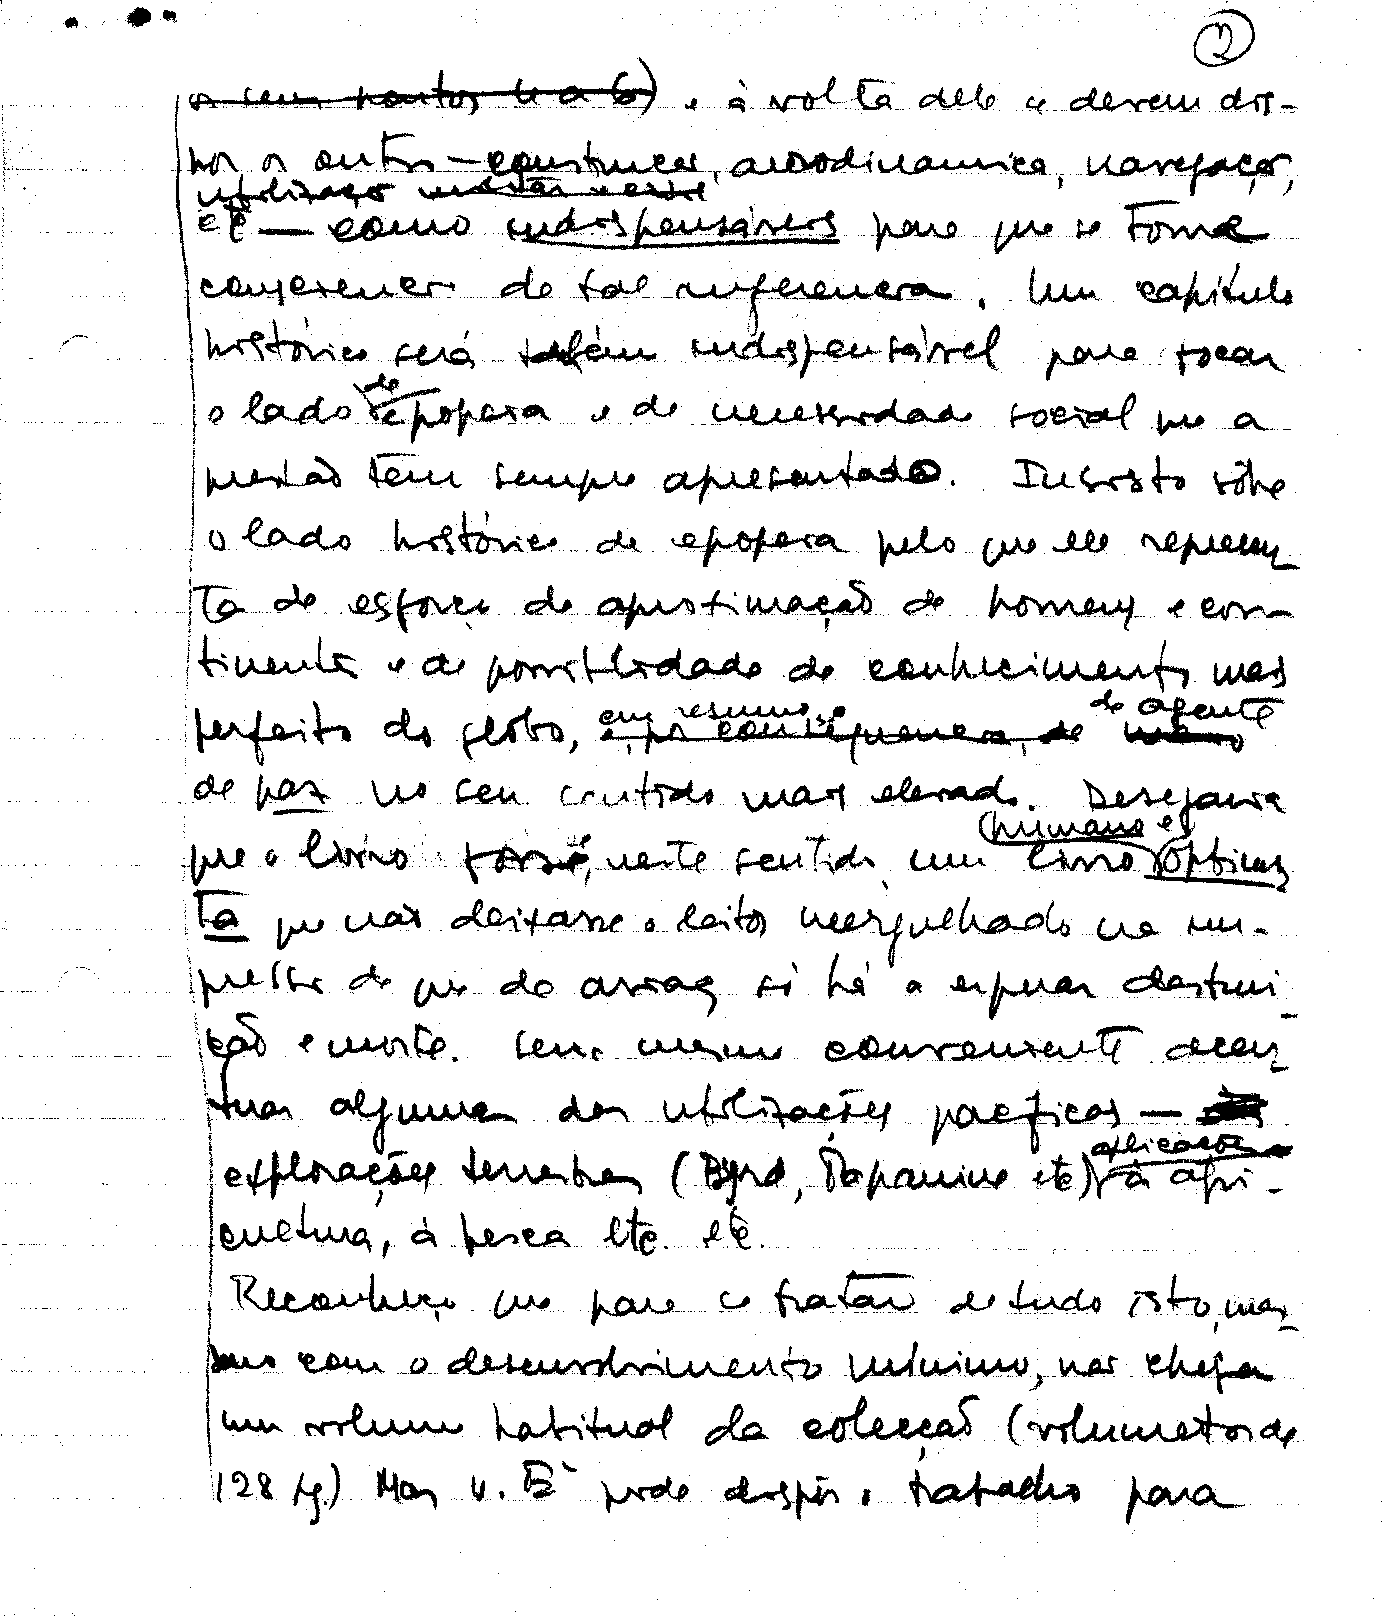 2
os seus pontos 4 a 6) e à volta dele se devem dis-
por os outros — construção, aerodinamica, navegação,
utilização
etc — como indispensáveis para que se tome
de tal. Um capítulo
histórico será também indispensável para tocar
o lado de epopeia e de necessidade social que a
questão tem sempre apresentado. Insisto sôbre
o lado histórico de epopeia pelo que ele represen-
ta de esforço de aproximação de homens e con-
tinentes e de possibilidade de conhecimento mais
perfeito do globo, em resumo, e por consequencia, de de agente
de paz no seu sentido mais elevado. Desejaria
que o livro fosse, neste sentido, um livro (humano e) optimis
ta que não deixasse o leitor mergulhado na im-
pressão de que do avião só há a esperar destrui-
ção e morte. Será mesmo conveniente acen-
tuar algumas das utilizações pacíficas —
explorações terrestres (Byrd, Papanine etc) aplicações à agri-
cultura, à pesca etc. etc.
Reconheço que para se tratar de tudo isto, mes-
mo com o desenvolvimento mínimo, não chega
um volume habitual da colecção (volumetos de
128 pg.) Mas V. Exª pode dispôr o trabalho para